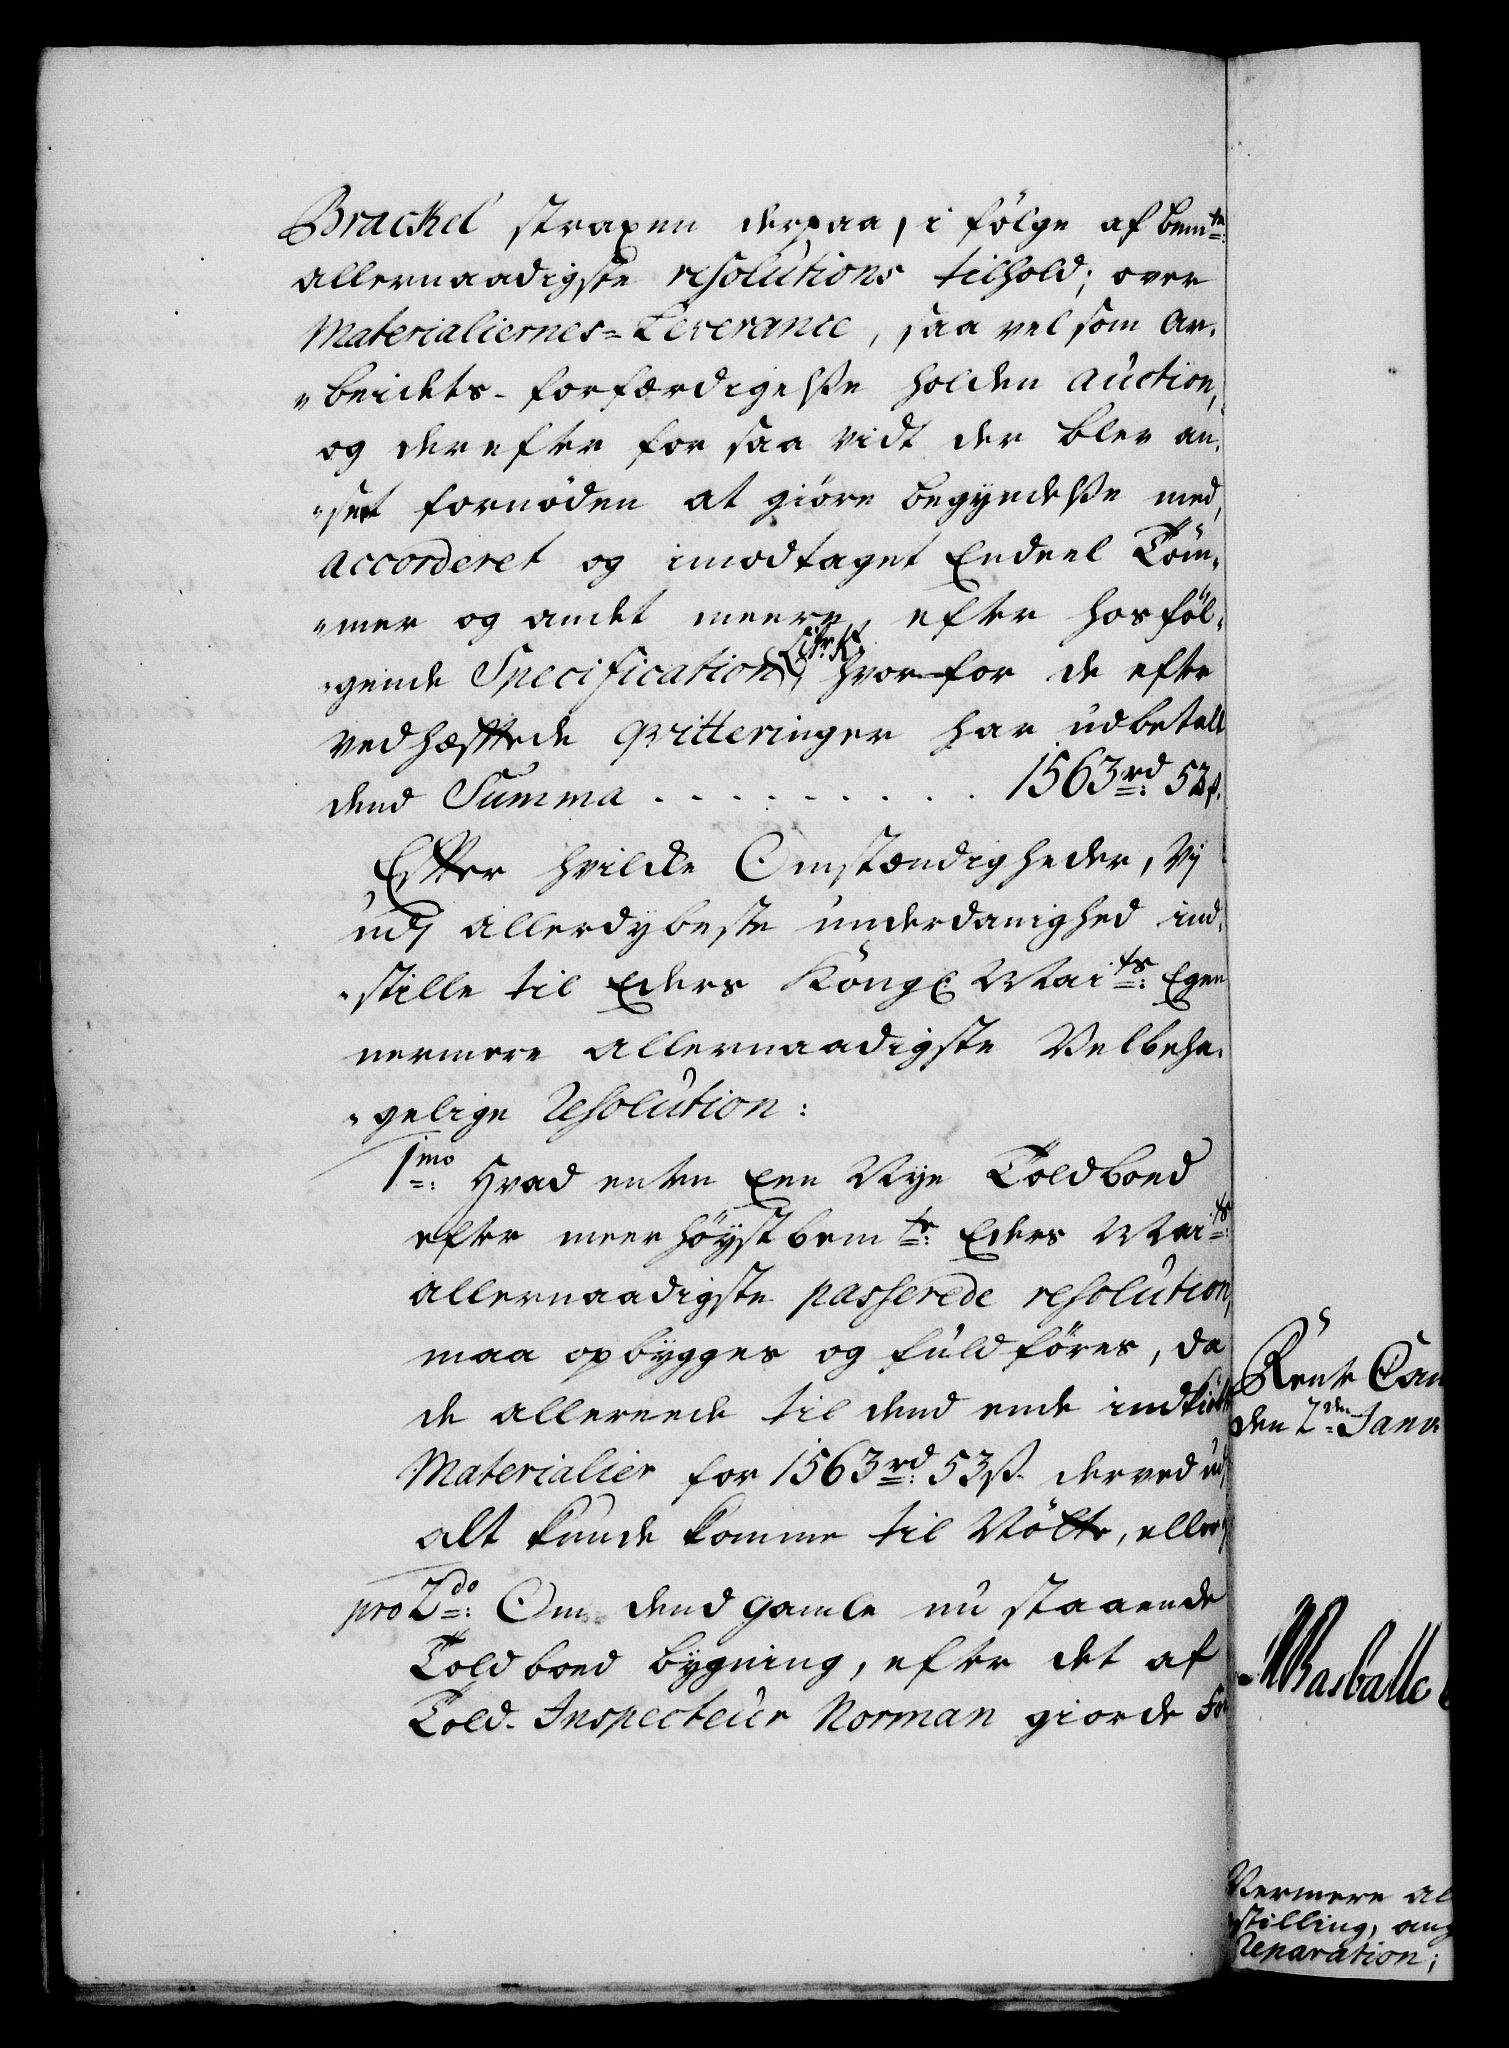 Brackel straxen derpaa, i følge af bemte:
allernaadigste resolutions tilhold; over
Materialiernes=Leverance, saa vel som Ar-
"beidets- forfærdigelße holden Auction,
og derefter for saa vidt der blev an-
"set fornöden at giöre begyndelße med,
accorderet og imodtaget Endeel Töm-
"mer og andet meere, efter hosföl-
"gende Specification Litr. K. hvorfor de efter
vedhæfftede qvitteringer har udbetalt
dend Summa . . . . . . . . . . 1563rd: 53ß.
Effter hvilcke Omstændigheder, Vi
udj allerdybeste underdanighed ind-
"stille til Eders Köngl: Maits: Egen
nermere allernaadigste Velbeha-
"gelige Resolution:
1mo: Hvad enten Een Nye Toldboed
efter meerhöystbemte: Eders Maits:
allernaadigste passerede resolution,
maa opbygges og fuldföres, da
de allereede til dend ende indkiöbte
Materialier for 1563rd: 53ß. derved ud
alt kunde komme til Nötte, eller
pro 2do: Om dend gamle nu staaende
Toldboed bygning, efter det af
Told-Inspecteur Norman giorde For
Rente Cam
den 2den Janv:
Basballe
Nermere al
stilling, ang
Reparation;